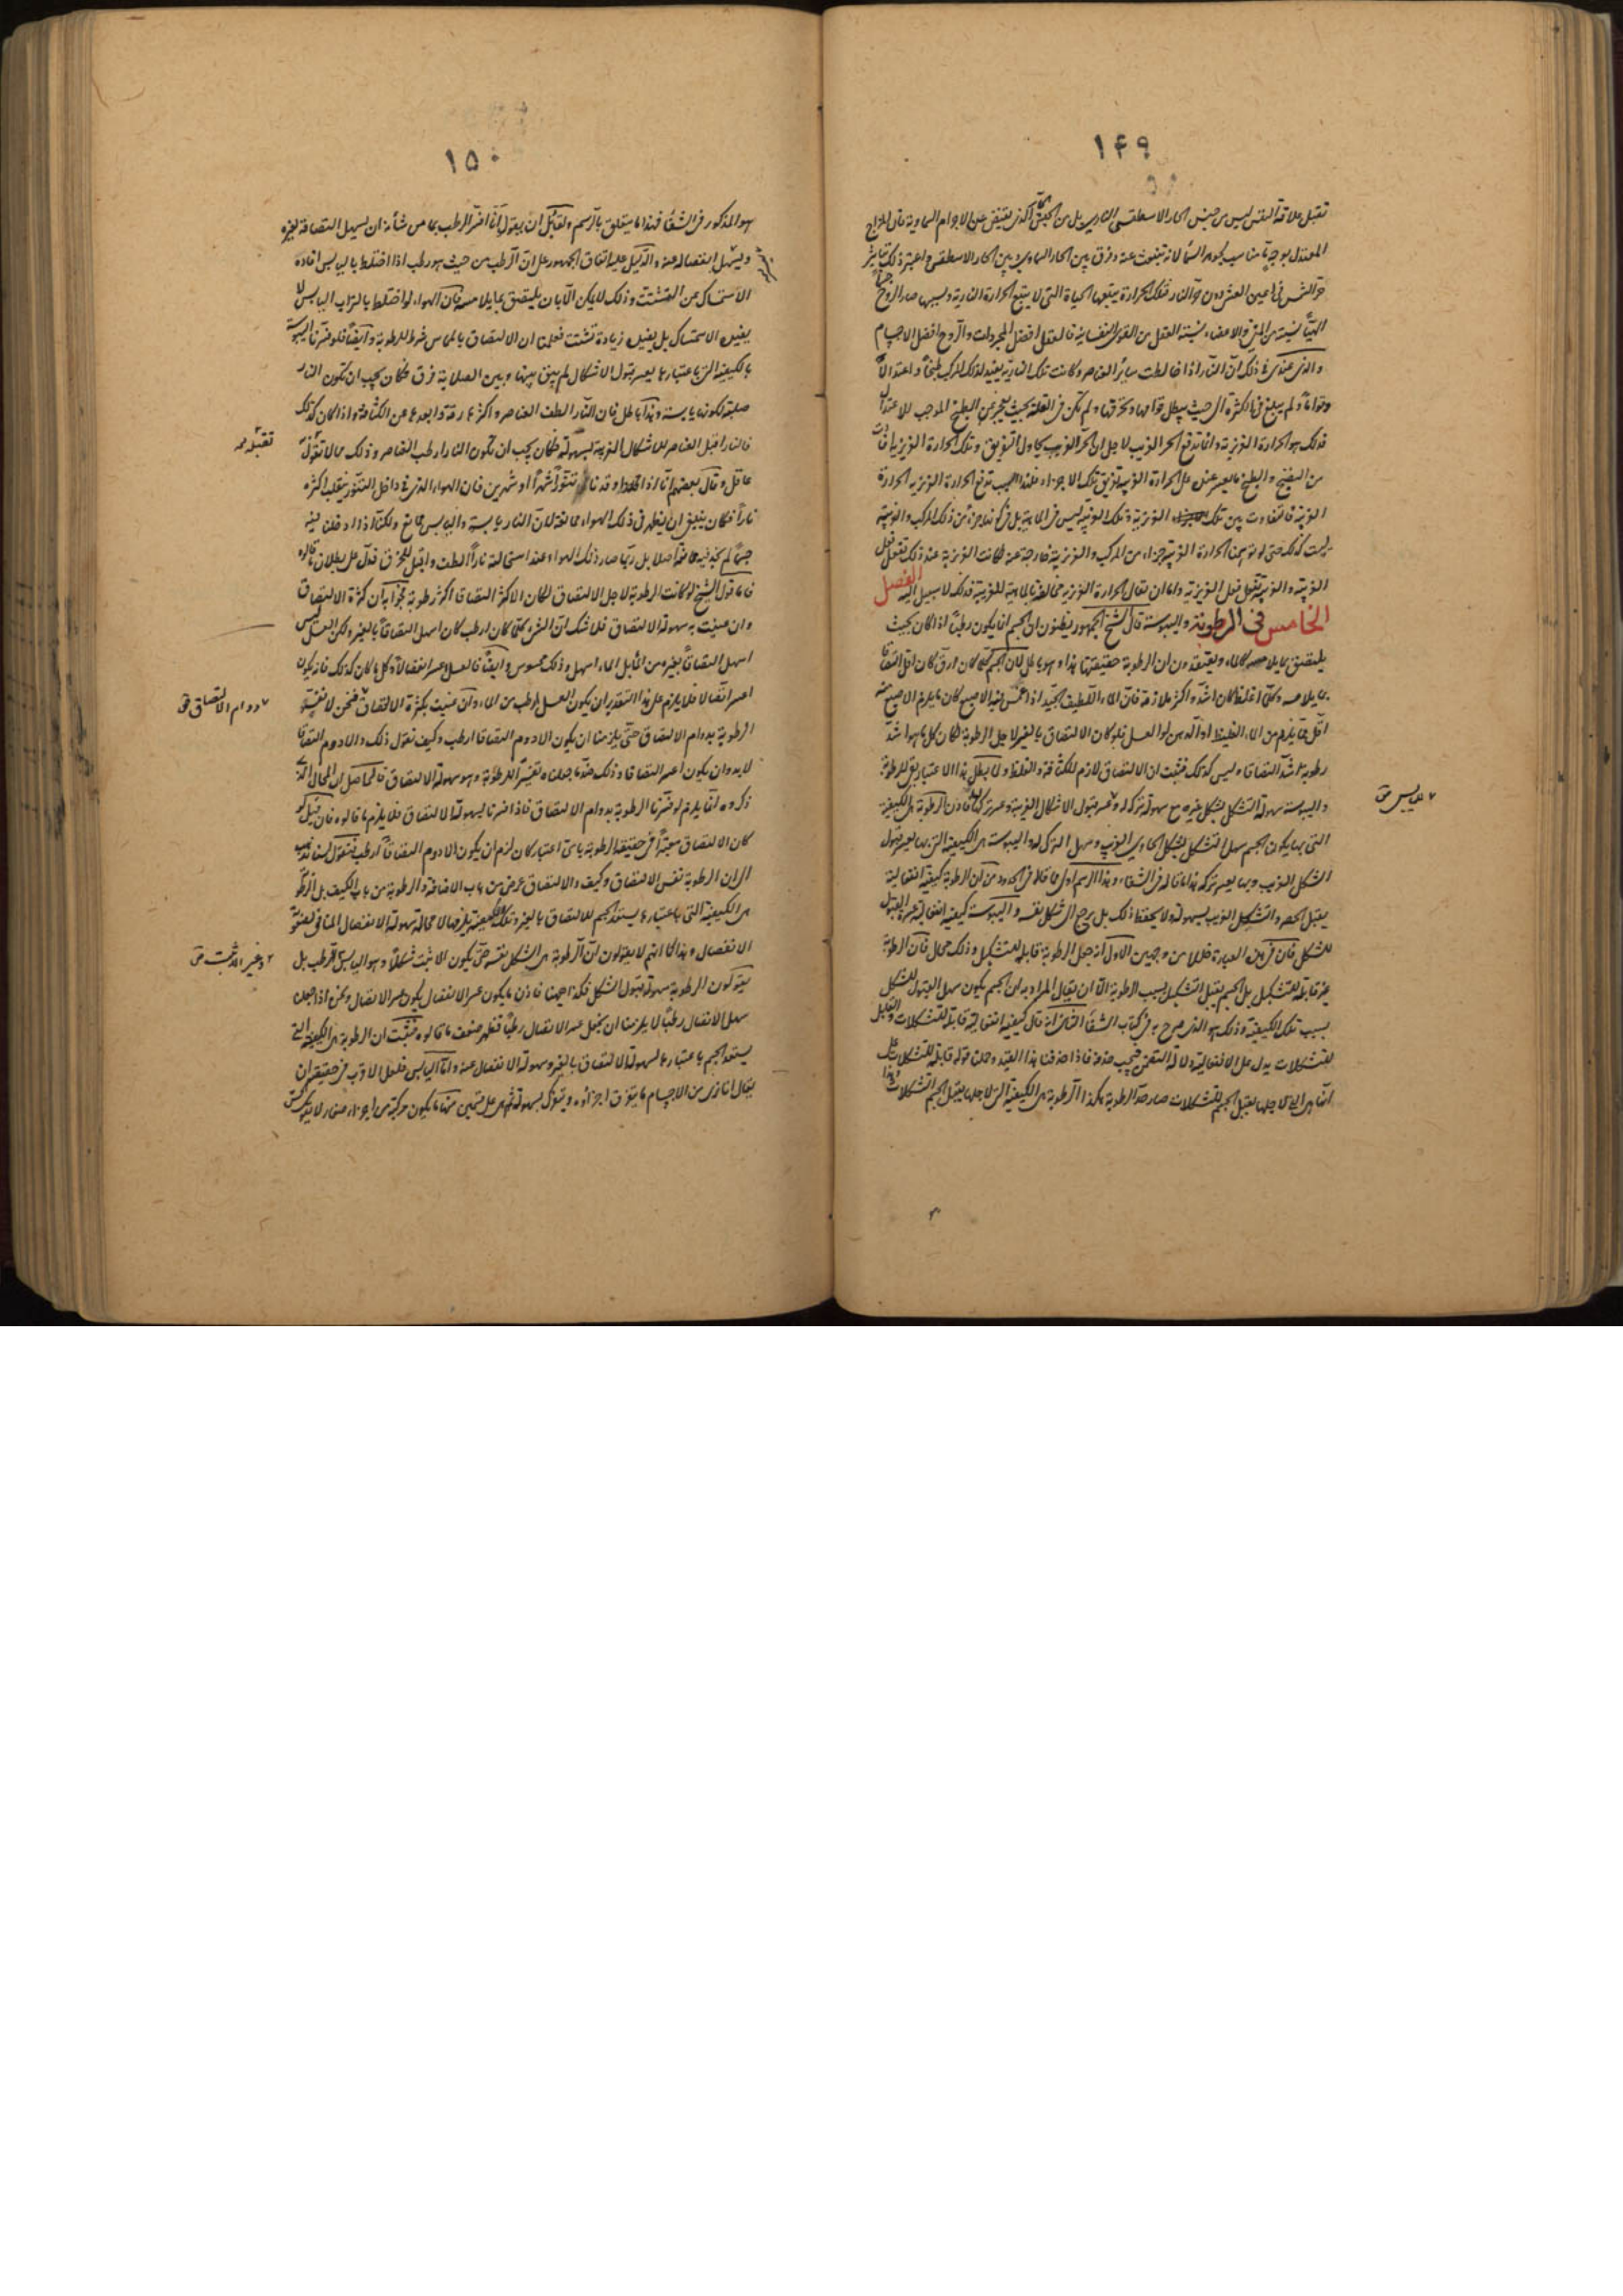 ١٤٩
تقبل علاقة النفس ليس من جنس الحار الاسطقسى النارى بل من الحار الذى يفيض عن الاجرام السماوية فان المزاج
المعتدل بوجه ما مناسب لجوهر السماء لانه ينبعث عنه وفرق بين الحار السماوى وبين الحار الاسطقسى واعتبر ذلك بتأثير
حر الشمس فى اعين العشى دون حر النار فتلك الحرارة يتبعها الحياة التى لا يتبع الحرارة النارية وبسببها صار الروح جسما
الهيا نسبته من المنى والاعضاء نسبة العقل من القوى النفسانية فالعقل افضل المجردات والروح افضل الاجسام
والذى عندى فى ذلك ان النار اذا خالطت سائر العناصر وكانت تلك النارية يفيد لذلك المركب طبخا واعتدالا
وقواما ولم يبلغ فى الكثرة الى حيث يبطل قوامها وتحرقها ولم تكن فى القلة بحيث يعجز عن الطبخ الموجب للاعتدال
فذلك هو الحرارة الغريزية وانما تدفع الحر الغريب لاجل ان الحر الغريب يحاول التفريق وتلك الحرارة الغريزية افادت
من النضج والطبخ ما يعسر عنده على الحرارة الغريبة تفريق تلك الاجزاء فلهذا السبب تدفع الحرارة الغريزية الحرارة
الغريبة فالتفاوت بين تلك الغريزية وتلك الغريبة ليس فى الماهية بل فى كونها جزءا من ذلك المركب والغريبة
ليست كذلك حتى لو توهمنا الحرارة الغريبة جزءا من المركب والغريزية خارجة عنه لكانت الغريزية عند ذلك تفعل فعل
الغريبة والغريبة تفعل فعل الغريزية واما ان يقال الحرارة الغريزية مخالفة بالماهية للغريبة فذلك لا سبيل اليه الفصل
الخامس فى الرطوبة واليبوسة قال الشيخ الجمهور يظنون ان الجسم انما يكون رطبا اذا كان بحيث
يلتصق بما يلامسه كالماء ويعتقدون ان الرطوبة حقيقتها هذا وهو باطل لان الجسم كلما كان ارق كان اقل التصاقا
بما يلامسه وكلما اغلظ كان اشد واكثر ملازمة فان الماء اللطيف الجيد اذا غمس فيه الاصبع كان ما يلزم الاصبع منه
اقل مما يلزم من الماء الغليظ او الدهن او العسل فلو كان الالتصاق بالغير لاجل الرطوبة لكان كل ما هو اشد
رطوبة اشد التصاقا وليس كذلك فثبت ان الالتصاق لازم للكثافة والغلظ ولما بطل هذا الاعتبار بقى للرطوبة
واليبوسة سهولة التشكل بشكل غيره مع سهولة تركه له وعسر قبول الاشكال الغريبة وعسر تركها فاذن الرطوبة هى الكيفية
التى بها يكون الجسم سهل التشكل بشكل الحاوى الغريب وسهل الترك له واليبوسة هى الكيفية التى بها يعسر قبول
الشكل الغريب وبها يعسر تركه هذا ما قاله فى الشفاء وهذا الرسم اولى مما قاله فى الحدود من ان الرطوبة كيفية انفعالية
يقبل الحصر والتشكل الغريب بسهولة ولا يحفظ ذلك بل يرجع الى شكل نفسه واليبوسة كيفية انفعالية عسرة القبول
للشكل فان فى هذه العبارة خللا من وجهين الاول انه جعل الرطوبة قابلة للتشكيل وذلك محال فان الرطوبة
غير قابلة للتشكيل بل الجسم يقبل التشكيل بسبب الرطوبة الا ان يقال المراد به ان الجسم يكون سهل القبول للشكل
بسبب تلك الكيفية وذلك هو الذى صرح به فى كتاب الشفا الثانى انه قال كيفية انفعالية قابلة للتشكلات والقابل
للتشكلات يدل على الانفعالية دلالة التضمن فيجب حذفه فاذا حذفنا هذا القيد وحملنا قوله قابلة للتشكلات على
انها هى التى لاجلها يقبل الجسم التشكلات صار حد الرطوبة هكذا الرطوبة هى الكيفية التى لاجلها يقبل الجسم التشكلات وهذا
٧ لليابس
١٥٠
هو المذكور فى الشفا فهذا ما يتعلق بالرسم ولقائل ان يقول انا نفسر الرطب بما من شأنه ان يسهل التصاقه لغيره
ويسهل انفصاله عنه والدليل عليه اتفاق الجمهور على ان الرطب من حيث هو رطب اذا اختلط باليابس افاده
الاستمساك عن التشتت وذلك لا يمكن الا بان يلتصق بما يلامسه فان الهواء لو اختلط بالتراب اليابس لا
يفيده الاستمساك بل يفيده زيادة تشتت فعلمنا ان الالتصاق بالمماس شرط للرطوبة وايضا فلو فسرنا اليبوسة
بالكيفية التى باعتبارها يعسر قبول الاشكال لم يبق بينها وبين الصلابة فرق فكان يجب ان تكون النار
صلبة لكونها يابسة وهذا باطل فان النار الطف العناصر واكثرها رقة وابعدها عن الكثافة واذا كان كذلك
فالنار اقبل العناصر للاشكال الغريبة بسهولة فكان يجب ان تكون النار ارطب العناصر وذلك مما لا يقوله
عاقل وقال بعضهم انا اذا اوقدنا تنورا شهرا او شهرين فان الهواء الذى فى داخل التنور ينقلب اكثره
نارا فكان ينبغى ان يظهر فى ذلك الهواء ممانعة لان النار يابسة واليابس مانع ولكنا اذا ادخلنا فيه
جسما لم نجد فيه ممانعة اصلا بل ربما صار ذلك الهواء عند استحالته نارا الطف واقبل للخرق فدل على بطلان ما قالوه
فاما قول الشيخ لو كانت الرطوبة لاجل الالتصاق لكان الاكثر التصاقا اكثر رطوبة فجوابه ان كثرة الالتصاق
وان عنيت به سهولة الالتصاق فلا شك ان الشىء كلما كان ارطب كان اسهل التصاقا بالغير ولكن العسل ليس
اسهل التصاقا بغيره من الماء بل الماء اسهل وذلك محسوس وايضا فالعسل اعسر انفصالا وكل ما كان كذلك فانه يكون
اعسر اتصالا فلا يلزم على هذا التقدير ان يكون العسل ارطب من الماء وان عنيت بكثرة الالتصاق فنحن لا نفسر
الرطوبة بدوام الالتصاق حتى يلزمنا ان يكون الادوم التصاقا ارطب وكيف نقول ذلك والادوم التصاقا
لا بد وان يكون اعسر التصاقا وذلك ضد ما جعلناه تفسيرا للرطوبة وهو سهولة الالتصاق فالحاصل ان المحال الذى
ذكروه انما يلزم لو فسرنا الرطوبة بدوام الالتصاق فاذا فسرنا بسهولة الالتصاق فلا يلزم ما قالوه فان قيل لو
كان الالتصاق معتبرا فى حقيقة الرطوبة باى اعتبار كان لزم ان يكون الادوم التصاقا ارطب فنقول لسنا نذهب
الى ان الرطوبة نفس الالتصاق وكيف والالتصاق عرض من باب الاضافة والرطوبة من باب الكيف بل الرطوبة
هى الكيفية التى باعتبارها يستعد الجسم للالتصاق بالغير وتلك الكيفية يلزمها لا محالة سهولة الانفصال المنافى لعسر
الانفصال وهذا كما انهم لا يقولون ان الرطوبة هى الشكل نفسه حتى يكون الاثبت شكلا وهو اليابس ارطب بل
يقولون الرطوبة سهولة قبول الشكل فكذا ههنا فاذن ما يكون عسر الانفصال يكون عسر الاتصال ونحن اذا جعلنا
سهل الاتصال رطبا لا يلزمنا ان نجعل عسر الاتصال رطبا فظهر ضعف ما قالوه فثبت ان الرطوبة هى الكيفية التى
يستعد الجسم باعتبارها لسهولة الالتصاق بالغير وسهولة الانفصال عنه واما اليابس فلعل الاقرب فى حقيقته ان
يقال انا نرى من الاجسام ما يتفرق اجزاؤه ويتفرك بسهولة ثم هى على قسمين منها ما يكون مركبة من اجزاء صغار لا
تقبله
٧ دوام الالتصاق